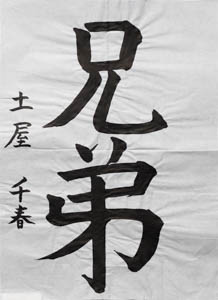 兄弟
土屋 千春